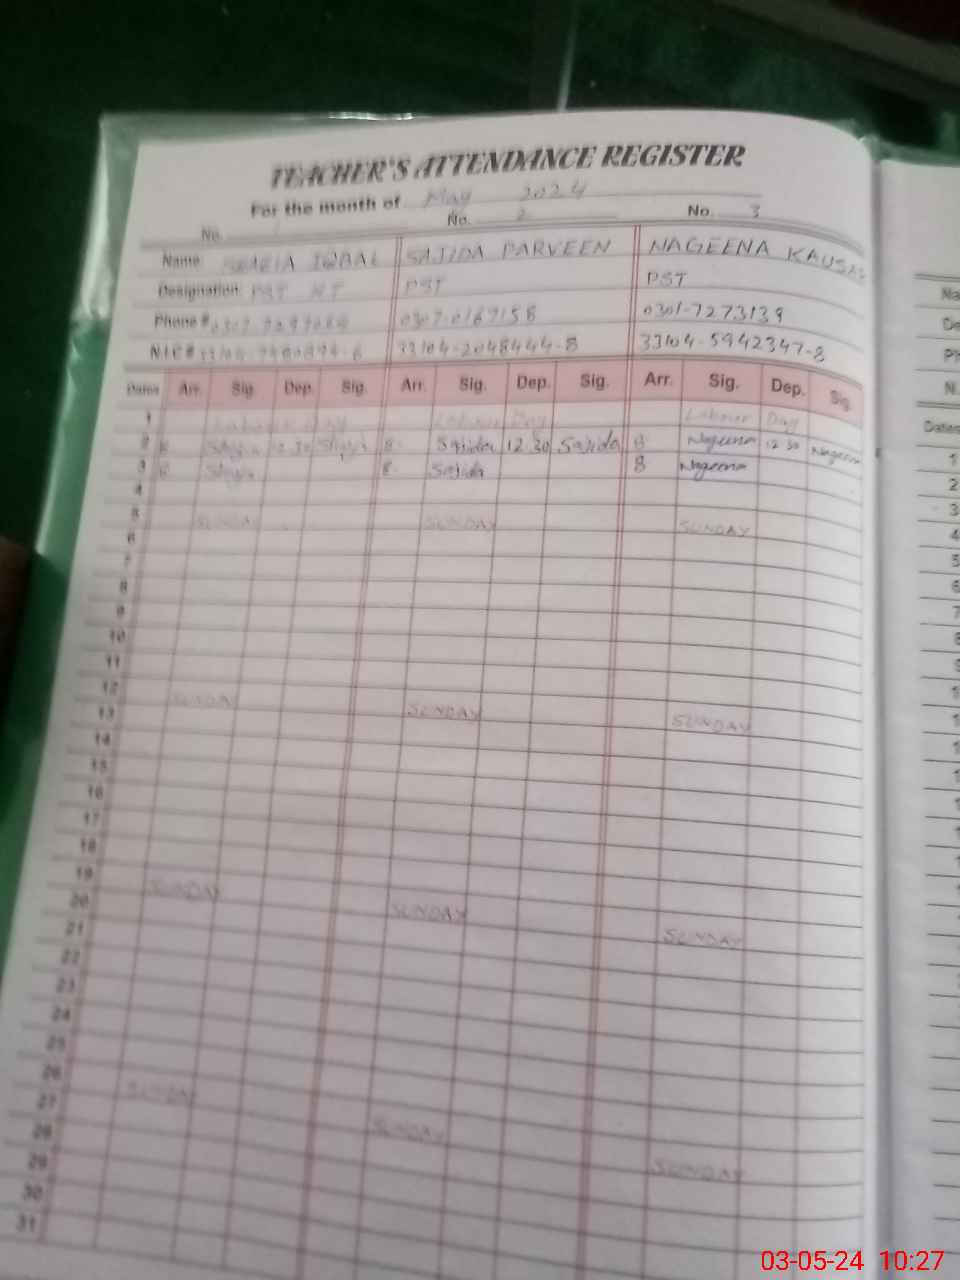 TEACHER'S ATTENDANCE REGISTER
For the month of May 2024
No. 1 No. 2 No. 3
Name IQBAL SAJIDA PARVEEN NAGEENA KAUSAR
Designation: PST PST PST
Phone # 0307-0167158 0301-7273139
N.I.C # 33104-2048444-8 33104-5942347-8
Dates Arr. Sig. Dep. Sig. Arr. Sig. Dep. Sig. Arr. Sig. Dep. Sig.
1 Labour Day Labour Day Labour Day
2 8 12.30 8 Sajida 12.30 Sajida 8 Nageena 12 30 Nageena
3 8 8 Sajida 8 Nageena
4
5 SUNDAY SUNDAY SUNDAY
6
7
8
9
10
11
12 SUNDAY SUNDAY SUNDAY
13
14
15
16
17
18
19 SUNDAY SUNDAY SUNDAY
20
21
22
23
24
25
26 SUNDAY SUNDAY SUNDAY
27
28
29
30
31
Na
De
Ph
N.
Dates
1
2
3
4
5
6
7
8
03-05-24 10:27